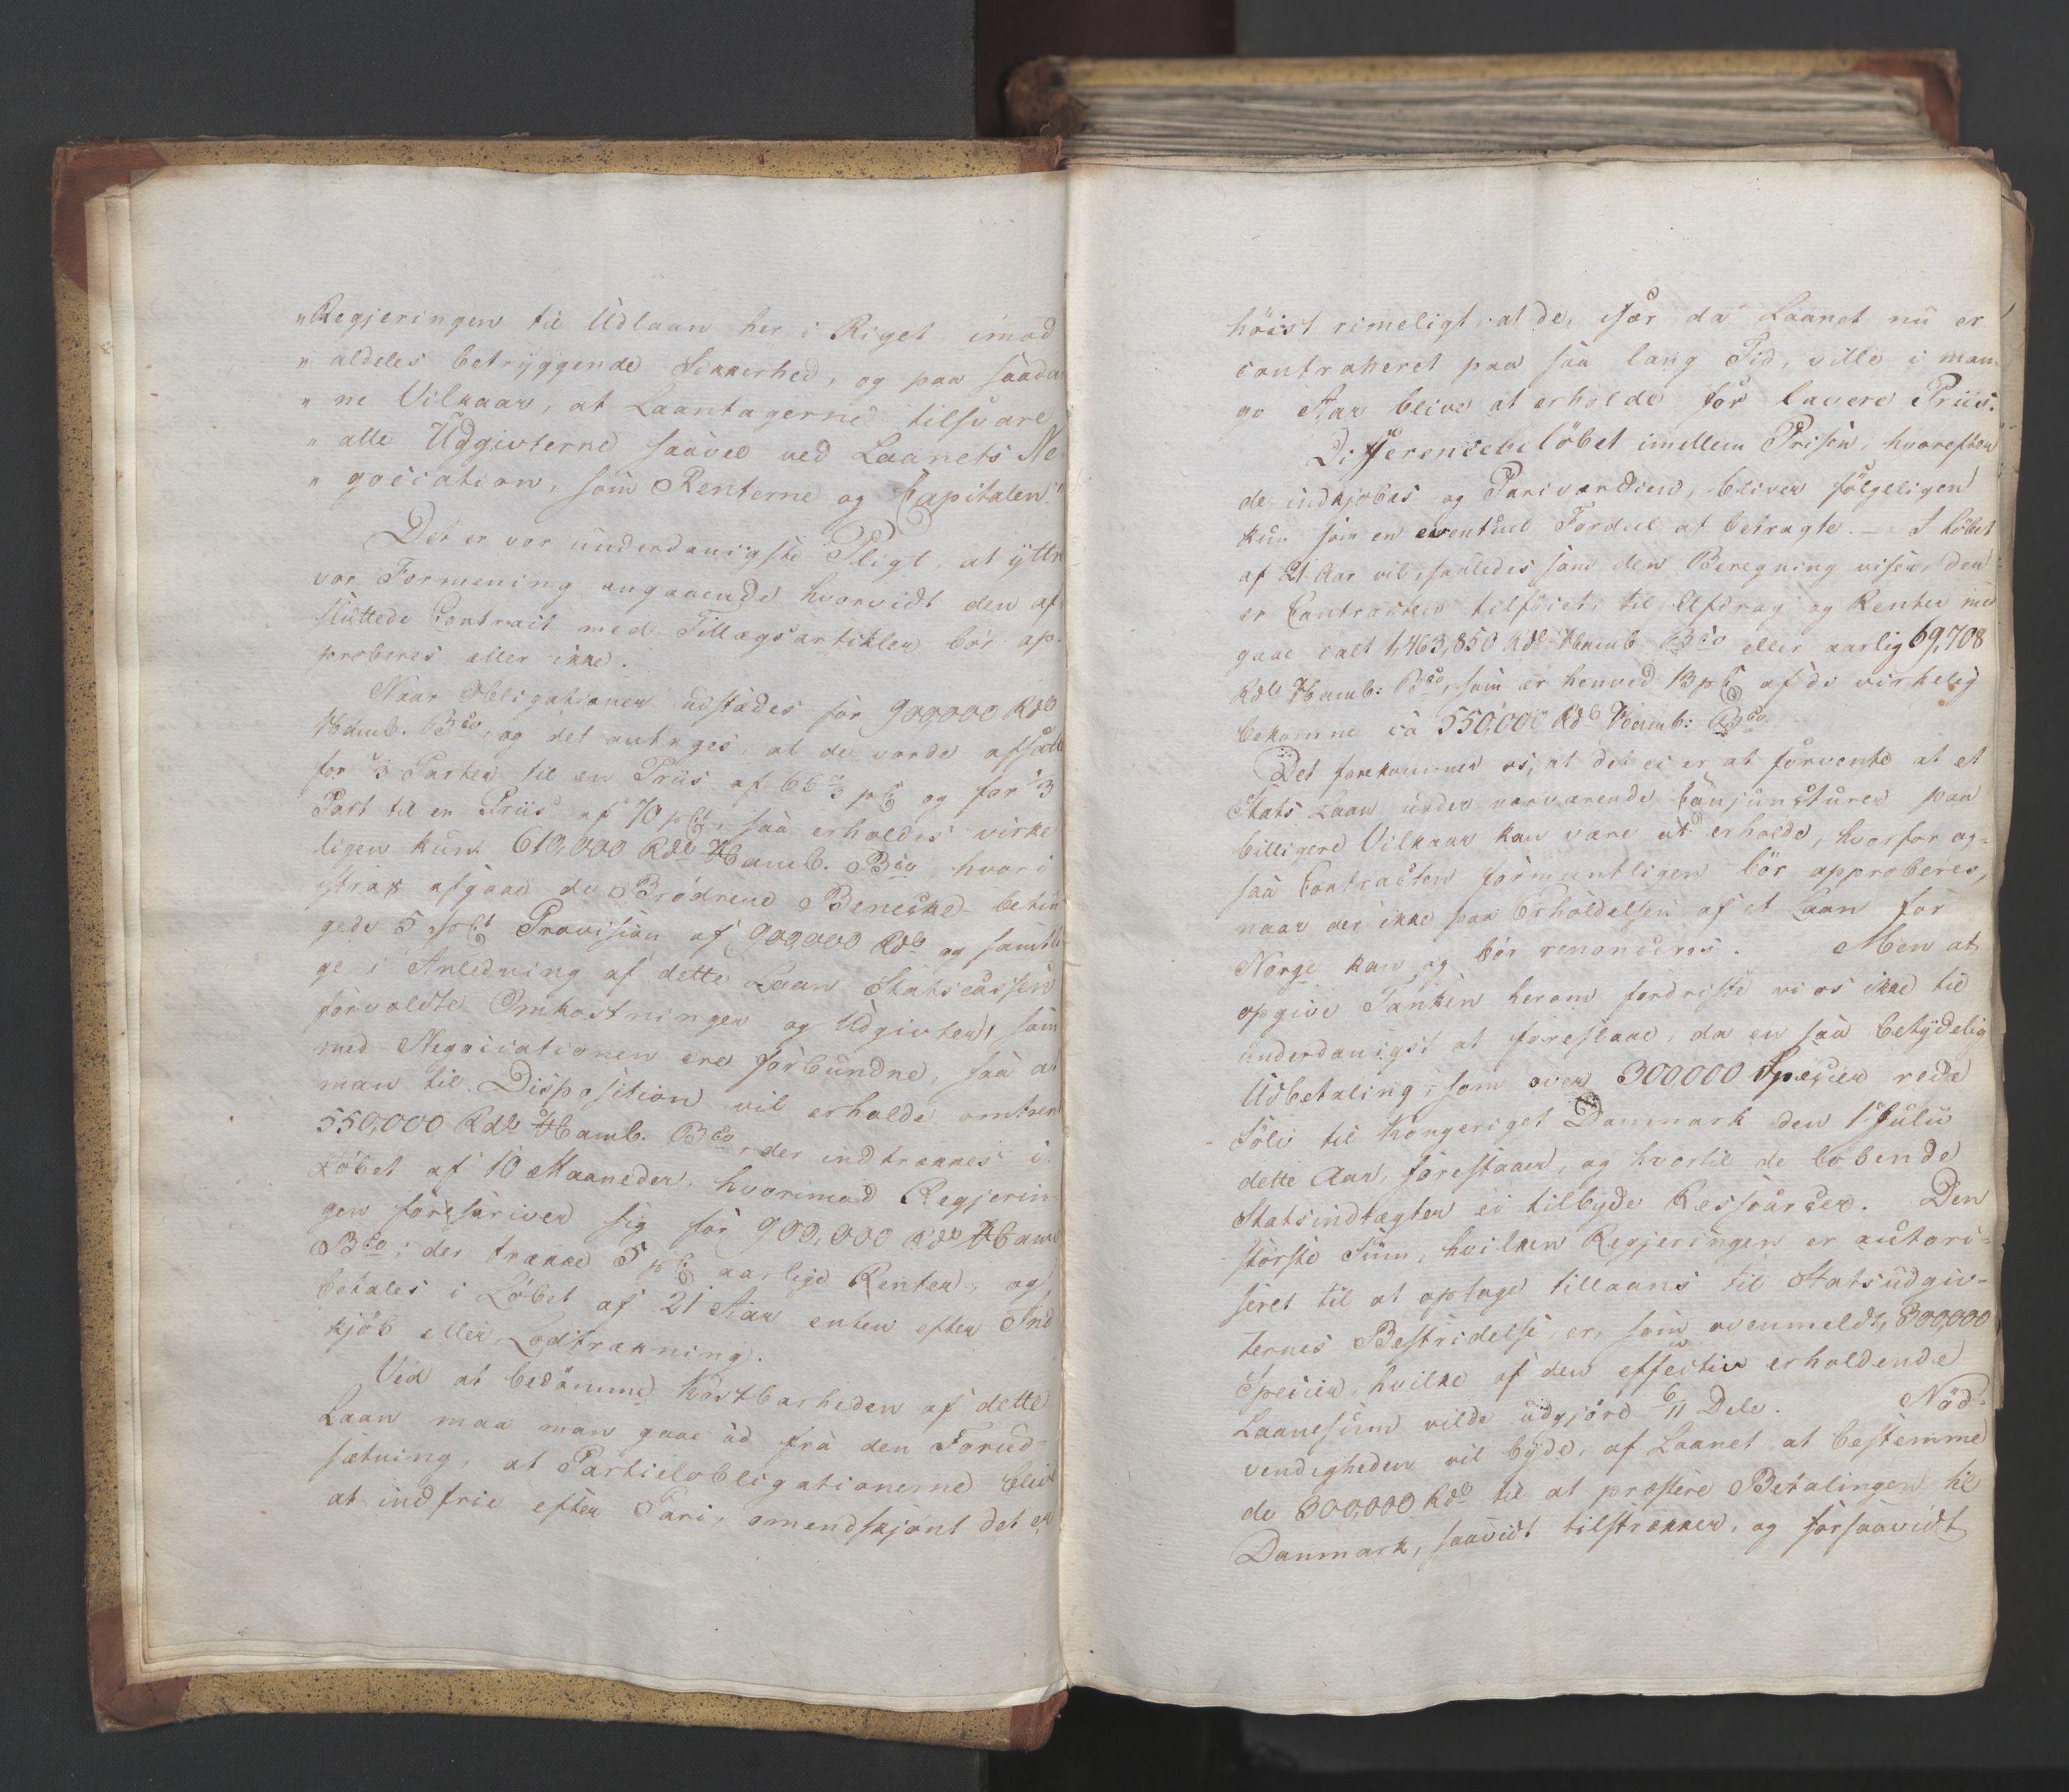 "Regjeringen til Udlaan her i Riget, imod
" aldeles betryggende Sikkerhed, og paa saada-
" ne Vilkaar, at Laantagerne tilsvare
" alle Udgivterne saavel ved Laanets Ne-
" gociation, som Renterne og Capitalen."
Det er vor underdanigste Pligt, at yttre
vor Formening angaaende hvorvidt den af-
sluttede Contract med Tillægsartikler bör ap-
proberes eller ikke.
Naar Obligationer udstædes for 900,000 Rdlr
Hamb. Bco, og det antages, at de vorde afsatte
for 2/3 Parter til en Priis af 66 2/3 pCt og for 1/3
Part til en Priis af 70 pCt, saa erholdes virke-
ligen kun 610,000 Rdlr Hamb. Bco, hvori
strax afgaae de Brödrene Benecke betin-
gede 5 pCt Provision af 900,000 Rdlr og samtli-
ge i Anledning af dette Laan Statscassen
forvoldte Omkostninger og Udgivter, som
med Negociationen ere forbundne, saa at
man til Disposition vil erholde omtrent
550,000 Rdlr Hamb. Bco, der indtrækkes i
Löbet af 10 Maaneder, hvorimod Regjerin-
gen forskriver sig for 900,000 Rdlr Hamb
Bco; der trække 5 pCt aarlige Renter, og
betales i Löbet af 21 Aar enten efter Ind-
kjöb eller Lodtrækning.
Ved at bedömme Kostbarheden af dette
Laan maa man gaae ud fra den Forud-
sætning, at Partielobligationerne blive
at indfrie efter Pari, omendskjönt det er
höist rimeligt, at de, især da Laanet nu er
contraheret paa saa lang Tid, ville i man-
ge Aar blive at erholde for lavere Priis.
Differencebelöbet imellem Prisen, hvorefter
de indkjöbes og Pariværdien, bliver fölgeligen
kun som en eventuel Fordeel at betragte. — I Löbet
af 21 Aar vil, saaledes som den Beregning viser, der
er Contracten tilföiet, til Afdrag og Renter med-
gaae ialt 1,463,850 Rdlr Hamb Bco eller aarlig 69,708
Rdlr Hamb: Bco, som er henved 13 pCt af de virkelig
bekomne ca 550,000 Rdlr Hamb: Bco.
Det forekommer os, at det ei er at forvente at et
Stats Laan under nærværende Conjuncturer paa
billigere Vilkaar kan være at erholde, hvorfor og-
saa Contracten formeentligen bör approberes,
naar der ikke paa Erholdelsen af et Laan for
Norge kan og bör renonceres. Men at
opgive Tanken herom fordriste vi os ikke til
underdanigst at foreslaae, da en saa betydelig
Udbetaling, som over 300000 Species rede
Sölv til Kongeriget Danmark den 1 Julii
dette Aar, forestaaer, og hvortil de löbende
Statsindtægter ei tilbyde Ressourcer. Den
störste Sum, hvilken Regjeringen er autori-
seret til at optage tillaans til Statsudgiv-
ternes Bestridelse, er, som ovenmeldt, 300,000
Species, hvilke af den effectiv erholdende
Laanesum vilde udgjöre 6/11 Dele. Nöd-
vendigheden vil byde, af Laanet at bestemme
de 300,000 Rdlr til at præstere Betalingen til
Danmark, saavidt tilstrækker, og forsaavidt